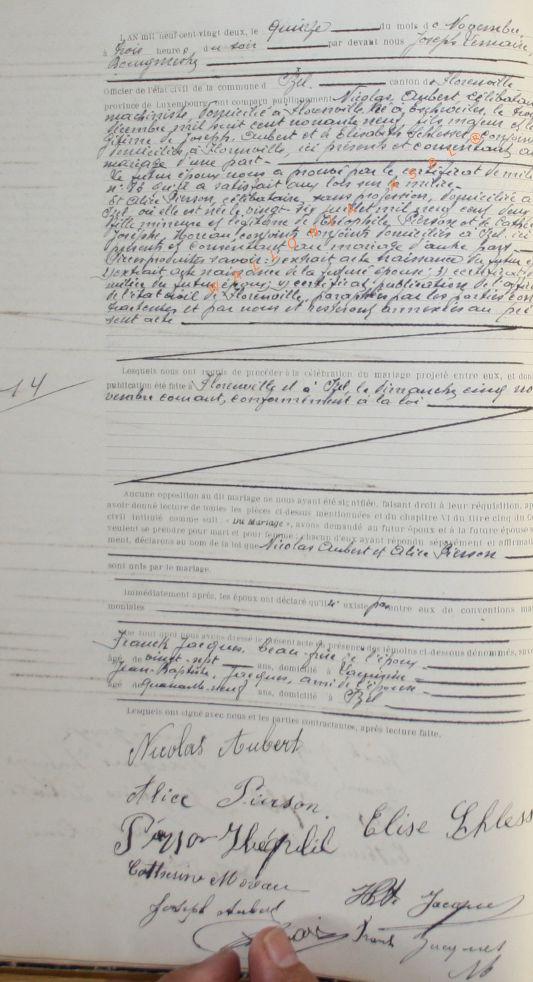 L'AN mil neuf cent vingt deux, le quinze du mois de Novembre,
à trois heures du soir par devant nous Joseph
Bourgmestre
Officier de l'état civil de la commune d'Izel, canton de Florenville
province de Luxembourg, ont comparu publiquement Nicolas Aubert, célibataire
machiniste, domicilié à Florenville, né à
décembre mil huit cent nonante neuf, fils majeur et lé
gitime de Joseph Aubert et de Elisabeth
domiciliés à Florenville, ici présents et consentant au
mariage d'une part.
Le futur époux nous a prouvé par le certificat de milice
n° 76 qu'il a satisfait aux lois sur la milice.
Et Alice Pierson, célibataire, sans profession, domiciliée à
Izel où elle est née le vingt-six juillet mil neuf cent deux
fille mineure et légitime de Théophile Pierson et de Cathe
rine Moreau, conjoints domiciliés à Izel, ici
présents et consentant au mariage d'autre part.
savoir: 1) extrait acte naissance du futur é
2) extrait acte naissance de la future épouse; 3) certificat de
milice du futur époux; 4) certificat publication de l'officier
de l'état civil de Florenville, paraphés par les parties con
tractantes et par nous et resteront annexées au pré
sent acte
Lesquels nous ont requis de procéder à la célébration du mariage projeté entre eux, et dont
publication été faite à Florenville et à Izel, le dimanche cinq no
vembre courant, conformément à la loi
14
Aucune opposition au dit mariage ne nous ayant été signifiée, faisant droit à leur réquisition, ap
avoir donné lecture de toutes les pièces ci-dessus mentionnées et du chapitre VI du titre cinq du
civil intitulé comme suit « DU MARIAGE », avons demandé au futur époux et à la future épouse s
veulent se prendre pour mari et pour femme; chacun d'eux ayant répondu séparément et affirmati
ment, déclarons au nom de la loi que Nicolas Aubert et Alice Pierson
sont unis par le mariage.
Immédiatement après, les époux ont déclaré qu'il n'existe pas entre eux de conventions ma
moniales
De tout quoi nous avons dressé le présent acte en présence des témoins ci-dessous dénommés,
Franck Jacques, beau-frère de l'époux
âgé de vingt-sept ans, domicilié à
Jean-Baptiste, Jacques, ami de l'épouse
âgé de quarante-neuf ans, domicilié à Izel
Lesquels ont signé avec nous et les parties contractantes, après lecture faite.
Nicolas Aubert
Alice Pierson
Pierson Théophil Elise Schless
Catherine Moreau
Joseph Aubert Jacques
Frank Jacques